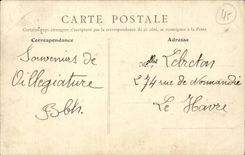 CARTE POSTALE
Certains pays étrangers n'acceptent pas la correspondance de ce côté, se renseigner à la Poste
Correspondance
Adresse
Souvenirs de
Villégiature
Lebreton
74 rue de Normandie
Le Havre